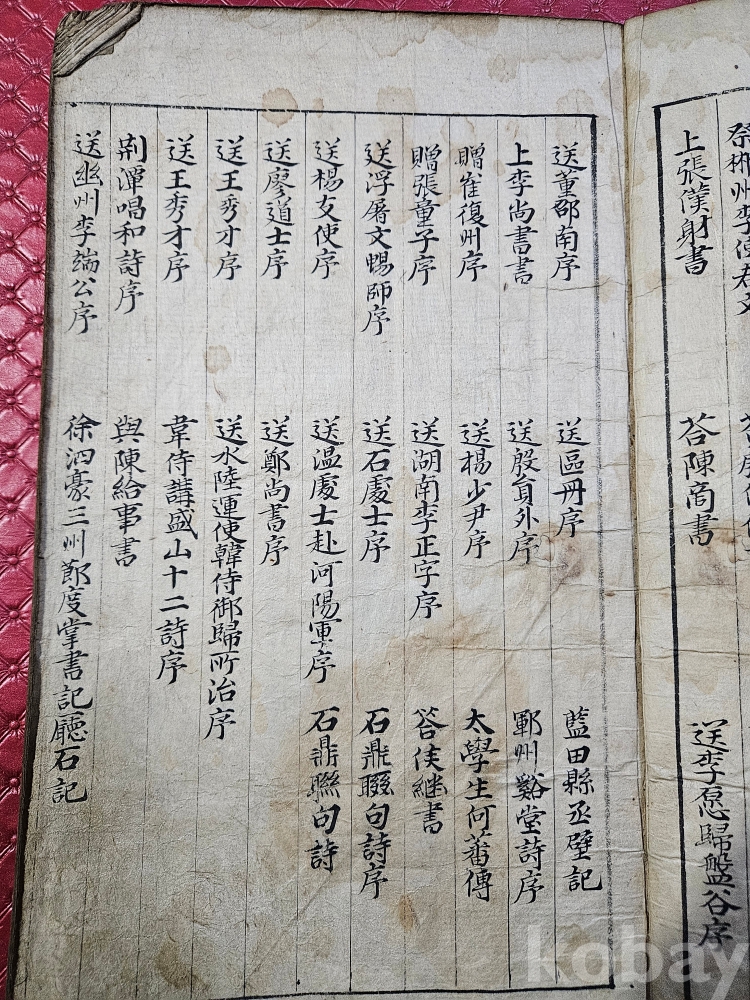 祭郴州李使君文
上張僕射書 荅陳商書 送李愿歸盤谷序
送董邵南序 送區冊序 藍田縣丞壁記
上李尚書書 送殷貟外序 鄆州谿堂詩序
贈崔復州序 送楊少尹序 太學生何蕃傳
贈張童子序 送湖南李正字序 荅侯継書
送浮屠文暢師序 送石處士序 石鼎聯句詩序
送楊支使序 送温處士赴河陽軍序 石鼎聯句詩
送廖道士序 送鄭尚書序
送王秀才序 送水陸運使韓侍御歸所治序
送王秀才序 韋侍講盛山十二詩序
荊潭唱和詩序 與陳給事書
送幽州李端公序 徐泗豪三州節度掌書記廳石記
kobay